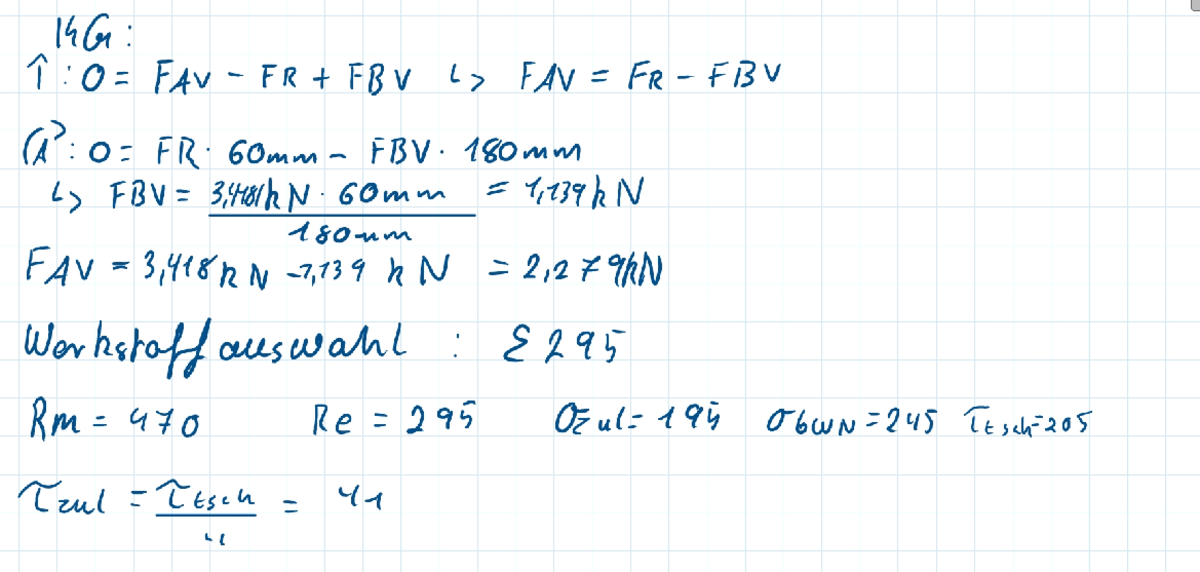 KG:
↑: 0 = FAV - FR + FBV ↳ FAV = FR - FBV
A↷: 0 = FR · 60mm - FBV · 180mm
↳ FBV = 3,418kN · 60mm / 180mm = 1,139kN
FAV = 3,418kN - 1,139kN = 2,279kN
Werkstoffauswahl : E295
Rm = 470 Re = 295 σzul = 195 σbWN = 245 τtsch = 205
τzul = τtsch / 4 = 41